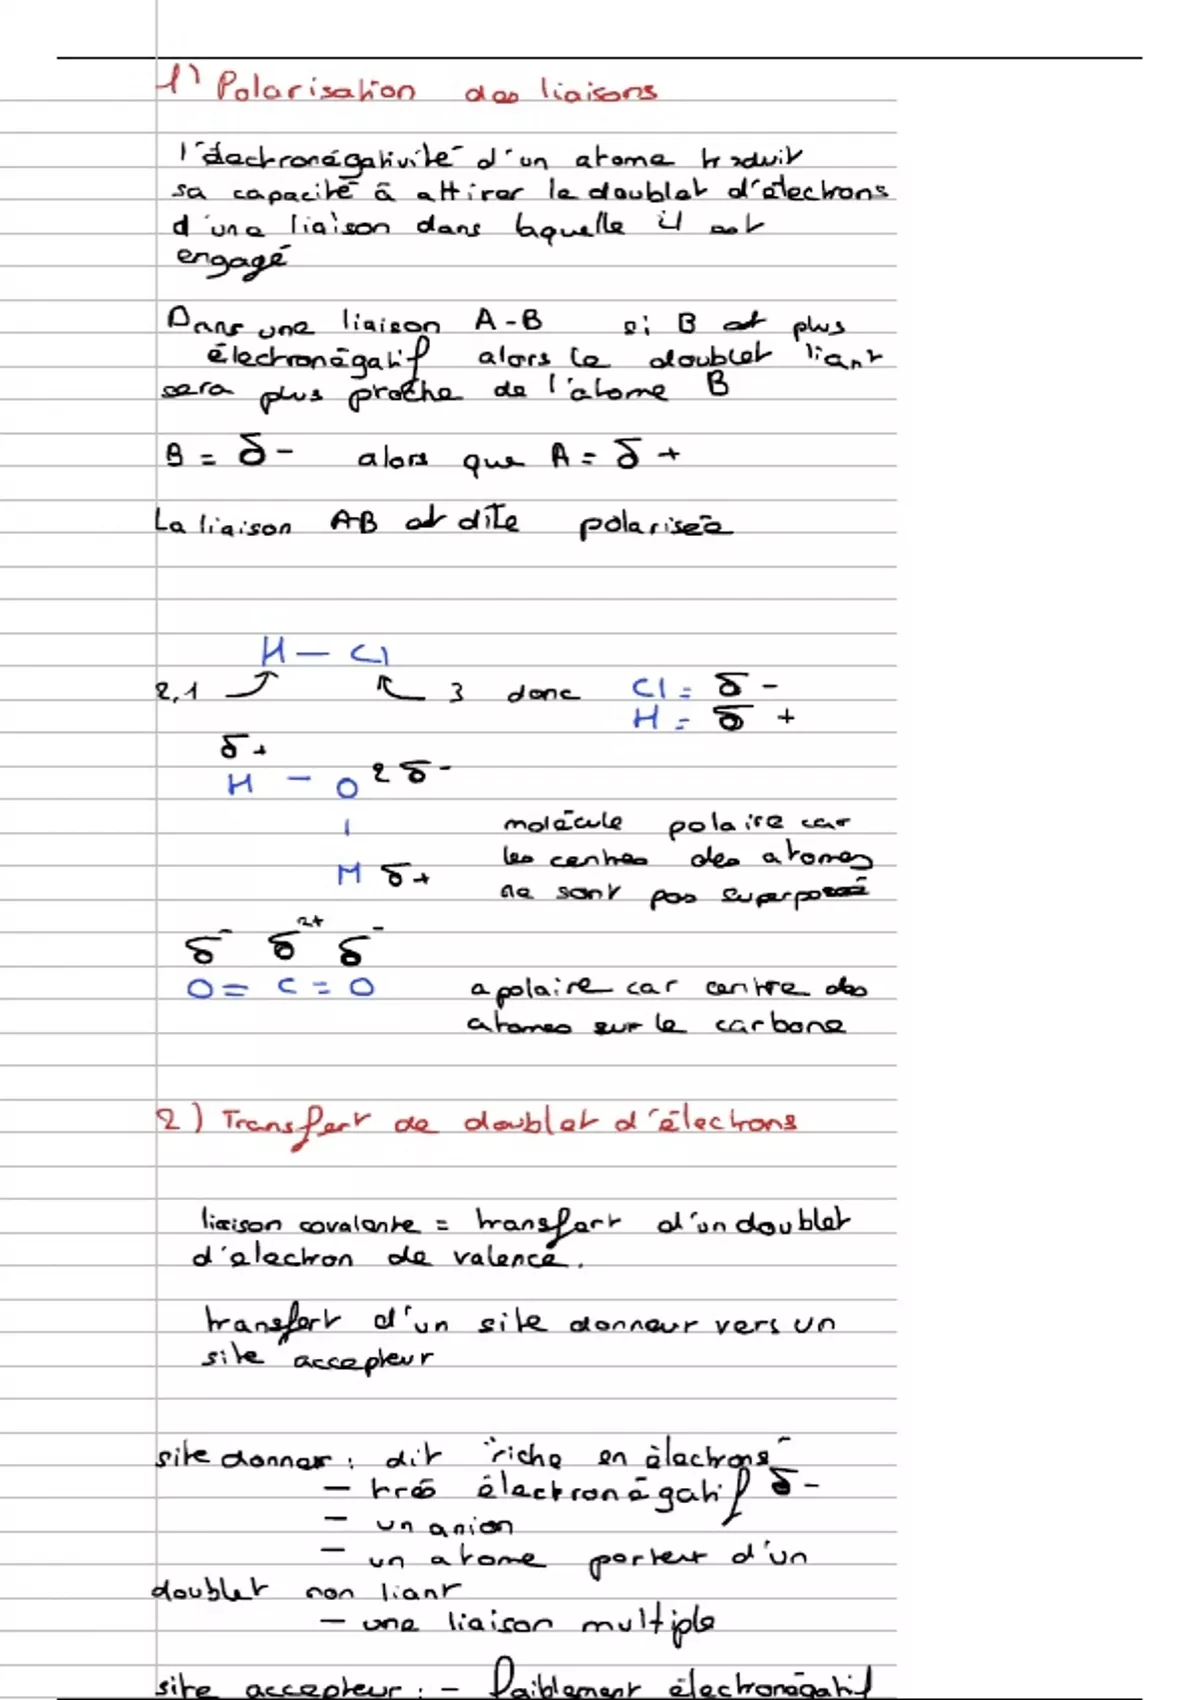 1) Polarisation des liaisons
l'"électronégativité" d'un atome traduit
sa capacité à attirer le doublet d'électrons
d'une liaison dans laquelle il est
engagé
Dans une liaison A-B si B est plus
électronégatif alors le doublet liant
sera plus proche de l'atome B
B = δ- alors que A = δ+
La liaison A-B est dite polarisée
H — Cl
2,1 3 donc Cl = δ -
H = δ +
δ+
H - O 2δ-
molécule polaire car
les centres des atomes
H δ+
ne sont pas superposé
δ- δ2+ δ-
O = C = O apolaire car centre des
atomes sur le carbone
2) Transfert de doublet d'électrons
liaison covalente = transfert d'un doublet
d'electron de valence.
transfert d'un site donneur vers un
site accepteur
site donner : dit "riche en électrons"
- très électronégatif δ-
- un anion
- un atome porteur d'un
doublet non liant
- une liaison multiple
site accepteur : - faiblement électronégatif